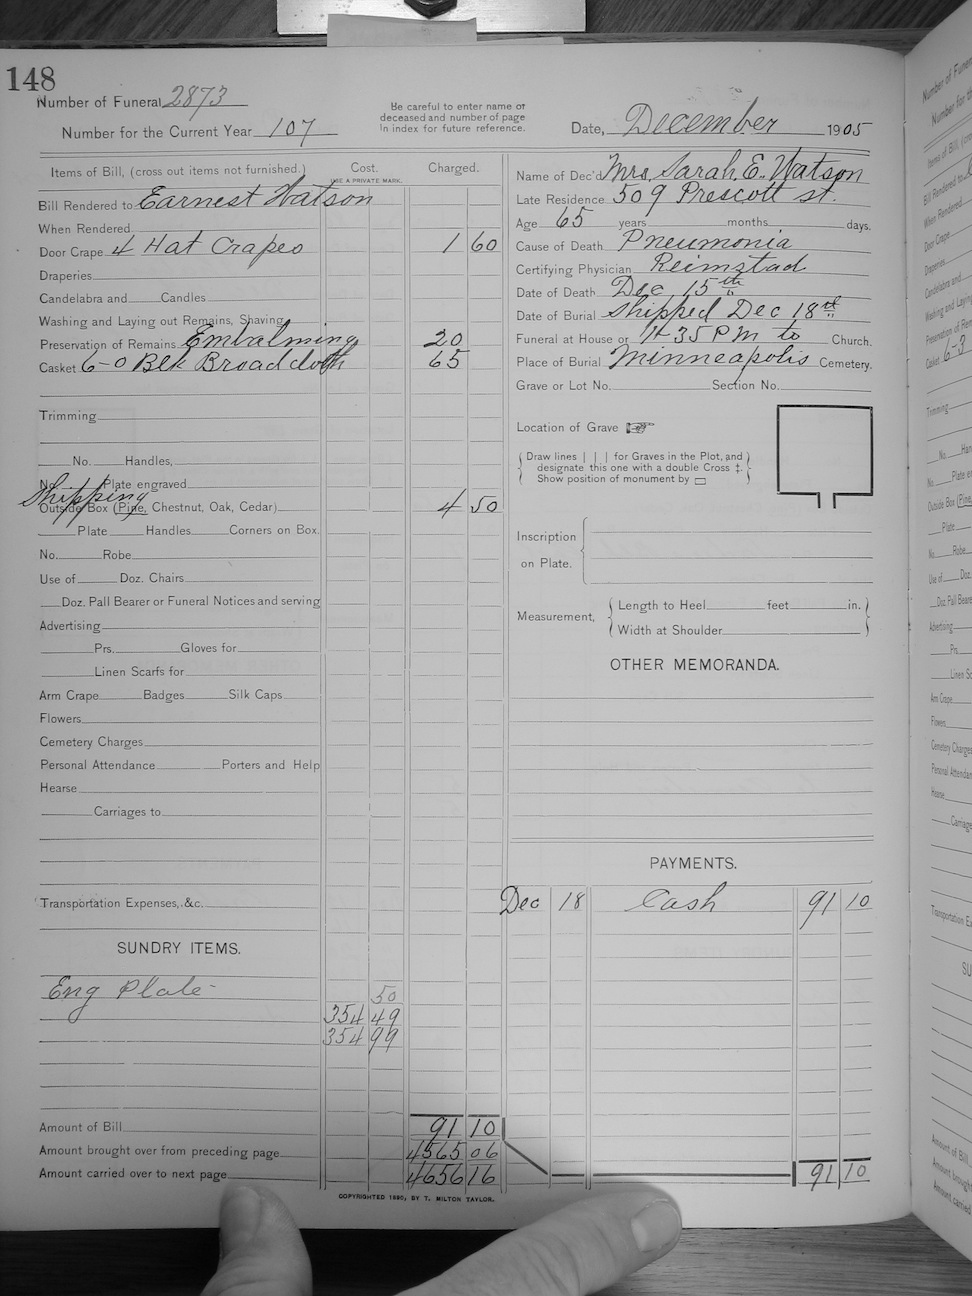 148
Number of Funeral 2873
Number for the Current Year 107
Be careful to enter name of
deceased and number of page
in index for future reference.
Date, December 1905
Items of Bill, (cross out items not furnished.) Cost. Charged.
USE A PRIVATE MARK.
Bill Rendered to Earnest Watson
When Rendered
Door Crape 4 Hat Crapes 1 60
Draperies
Candelabra and Candles
Washing and Laying out Remains, Shaving
Preservation of Remains Embalming 20
Casket 6-0 Blk Broadcloth 65
Trimming
No. Handles,
No. Plate engraved
Shipping
Outside Box (Pine, Chestnut, Oak, Cedar) 4 50
Plate Handles Corners on Box.
No. Robe
Use of Doz. Chairs
Doz. Pall Bearer or Funeral Notices and serving
Advertising
Prs. Gloves for
Linen Scarfs for
Arm Crape Badges Silk Caps
Flowers
Cemetery Charges
Personal Attendance Porters and Help
Hearse
Carriages to
Transportation Expenses, &c.
SUNDRY ITEMS.
Eng Plate 50
354 49
354 99
Amount of Bill 91 10
Amount brought over from preceding page 4565 06
Amount carried over to next page 4656 16
COPYRIGHTED 1890, BY T. MILTON TAYLOR.
Name of Dec'd Mrs. Sarah E. Watson
Late Residence 509 Prescott st.
Age 65 years months days.
Cause of Death Pneumonia
Certifying Physician Reimstad
Date of Death Dec 15th
Date of Burial Shipped Dec 18th
Funeral at House or 35 PM to Church.
Place of Burial Minneapolis Cemetery.
Grave or Lot No. Section No.
Location of Grave
Draw lines | | | for Graves in the Plot, and
designate this one with a double Cross ‡.
Show position of monument by
Inscription
on Plate.
Measurement,
Length to Heel feet in.
Width at Shoulder
OTHER MEMORANDA.
PAYMENTS.
Dec 18 Cash 91 10
91 10